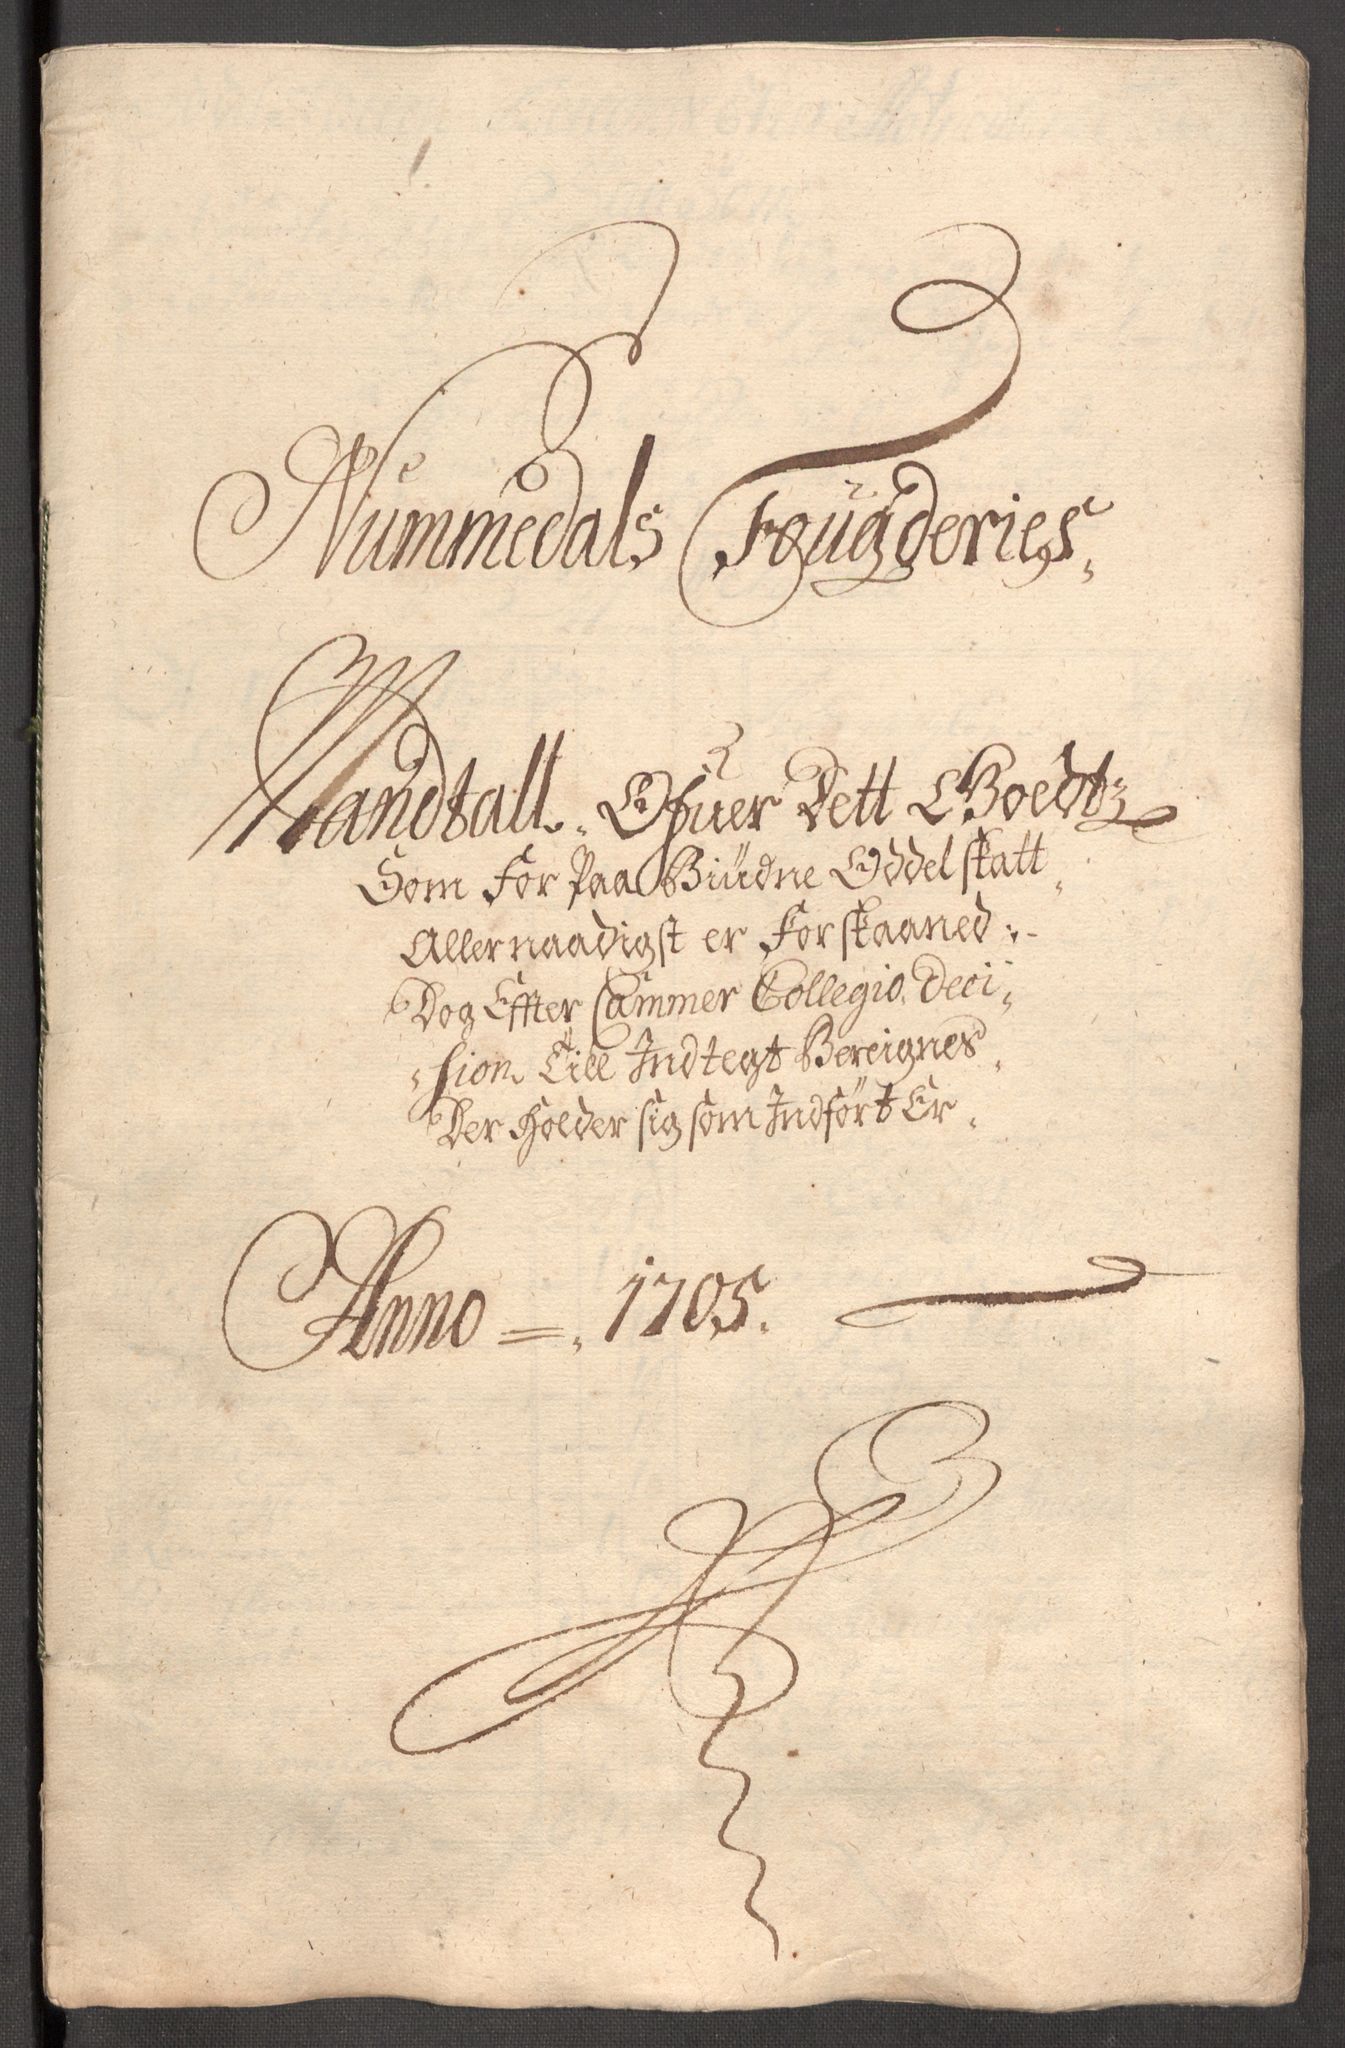 Nummedals Fougderies.
Mandtall. Ofuer Dett Goedtz
Som For Paa Biudne Oddel skatt,
Allernaadigst er Forskaaned.
Dog Effter Cammer Collegio, Deci,
sion, Till Indtegt Bereignes,
Der Holder sig som Indfört Er,
Anno =, 1705.